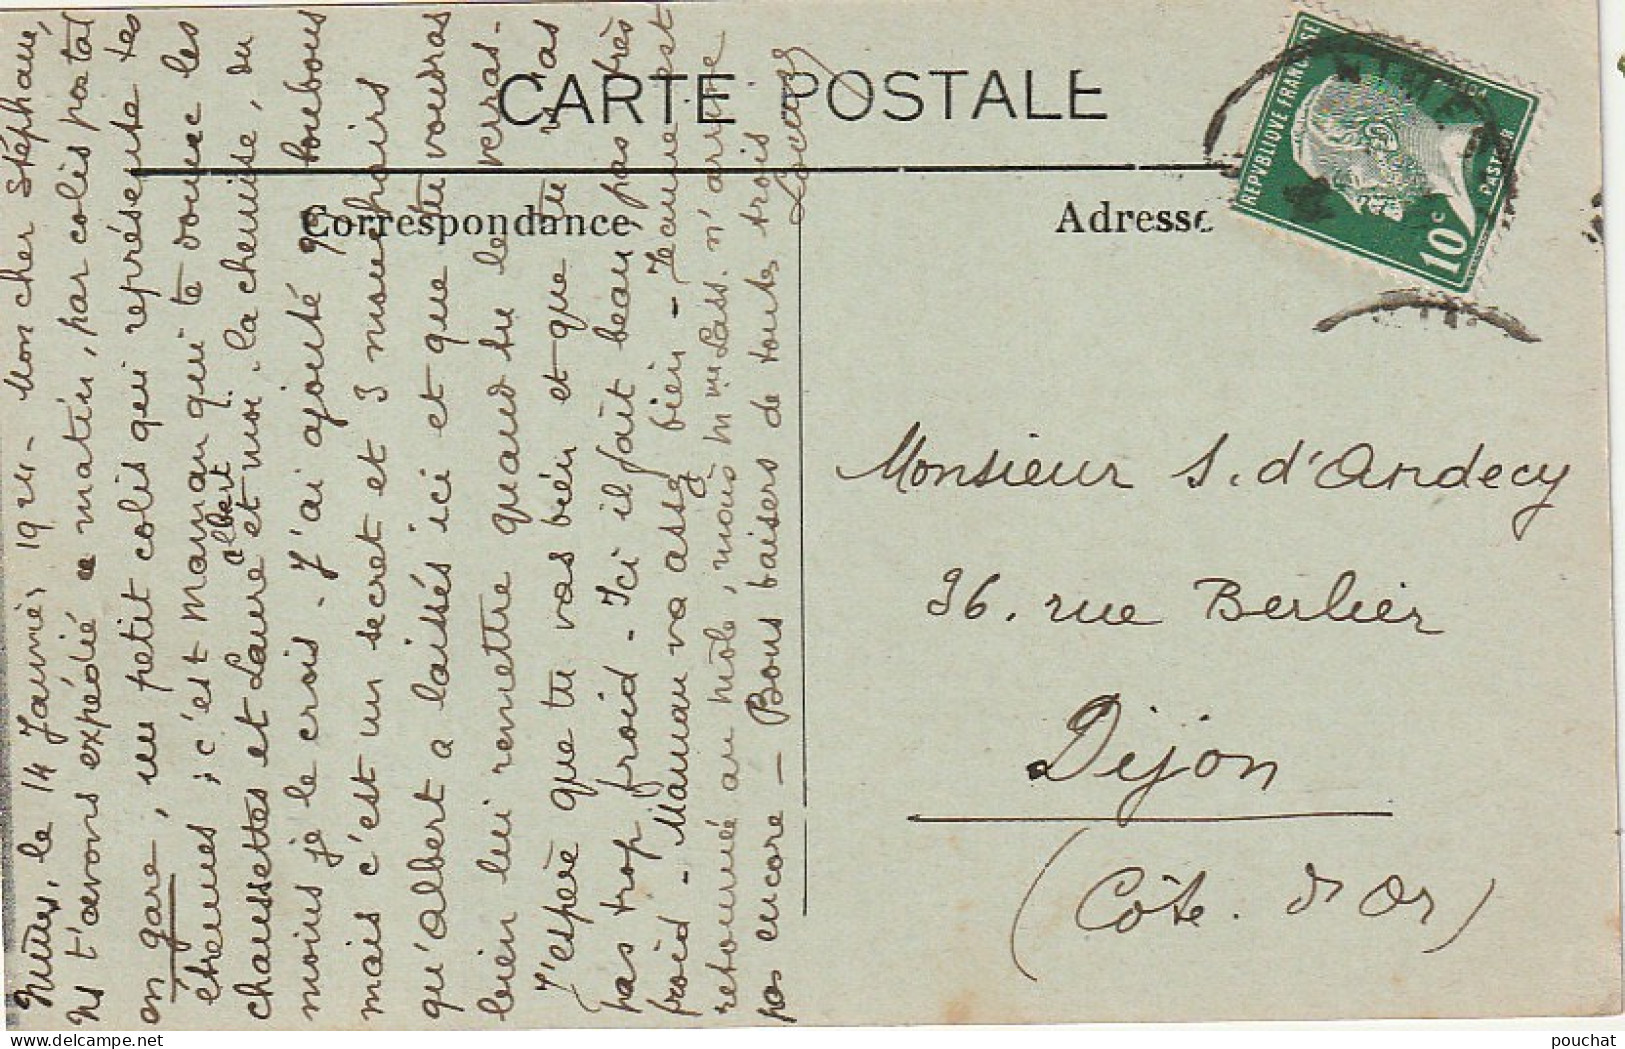 CARTE POSTALE
Correspondance
Adresse
REPVBLIQVE FRANCAISE
10c
PASTEUR
Nîmes, le 14 Janvier 192 - Mon cher Stéphane,
Ns t'avons expédié ce matin, par colis postal
en gare, un petit colis qui représente tes
étrennes ; c'est Maman qui te donne les
chaussettes et Laure Albert et moi, la chemise, du
moins je le crois - J'ai ajouté 99 bonbons
mais c'est un secret et 3 mouchoirs
qu'Albert a laissés ici et que tu voudras
bien lui remettre quand tu le verras -
J'espère que tu vas bien et que tu n'as
pas trop froid - Ici il fait beau, pas très
froid - Maman va assez bien - Jeanne est
retournée au môle, mais Mme Lass. n'arrive
pas encore - Bons baisers de toutes trois
Monsieur S. d'Andecy
36. rue Berlier
Dijon
(Côte. d'Or)
pouchat